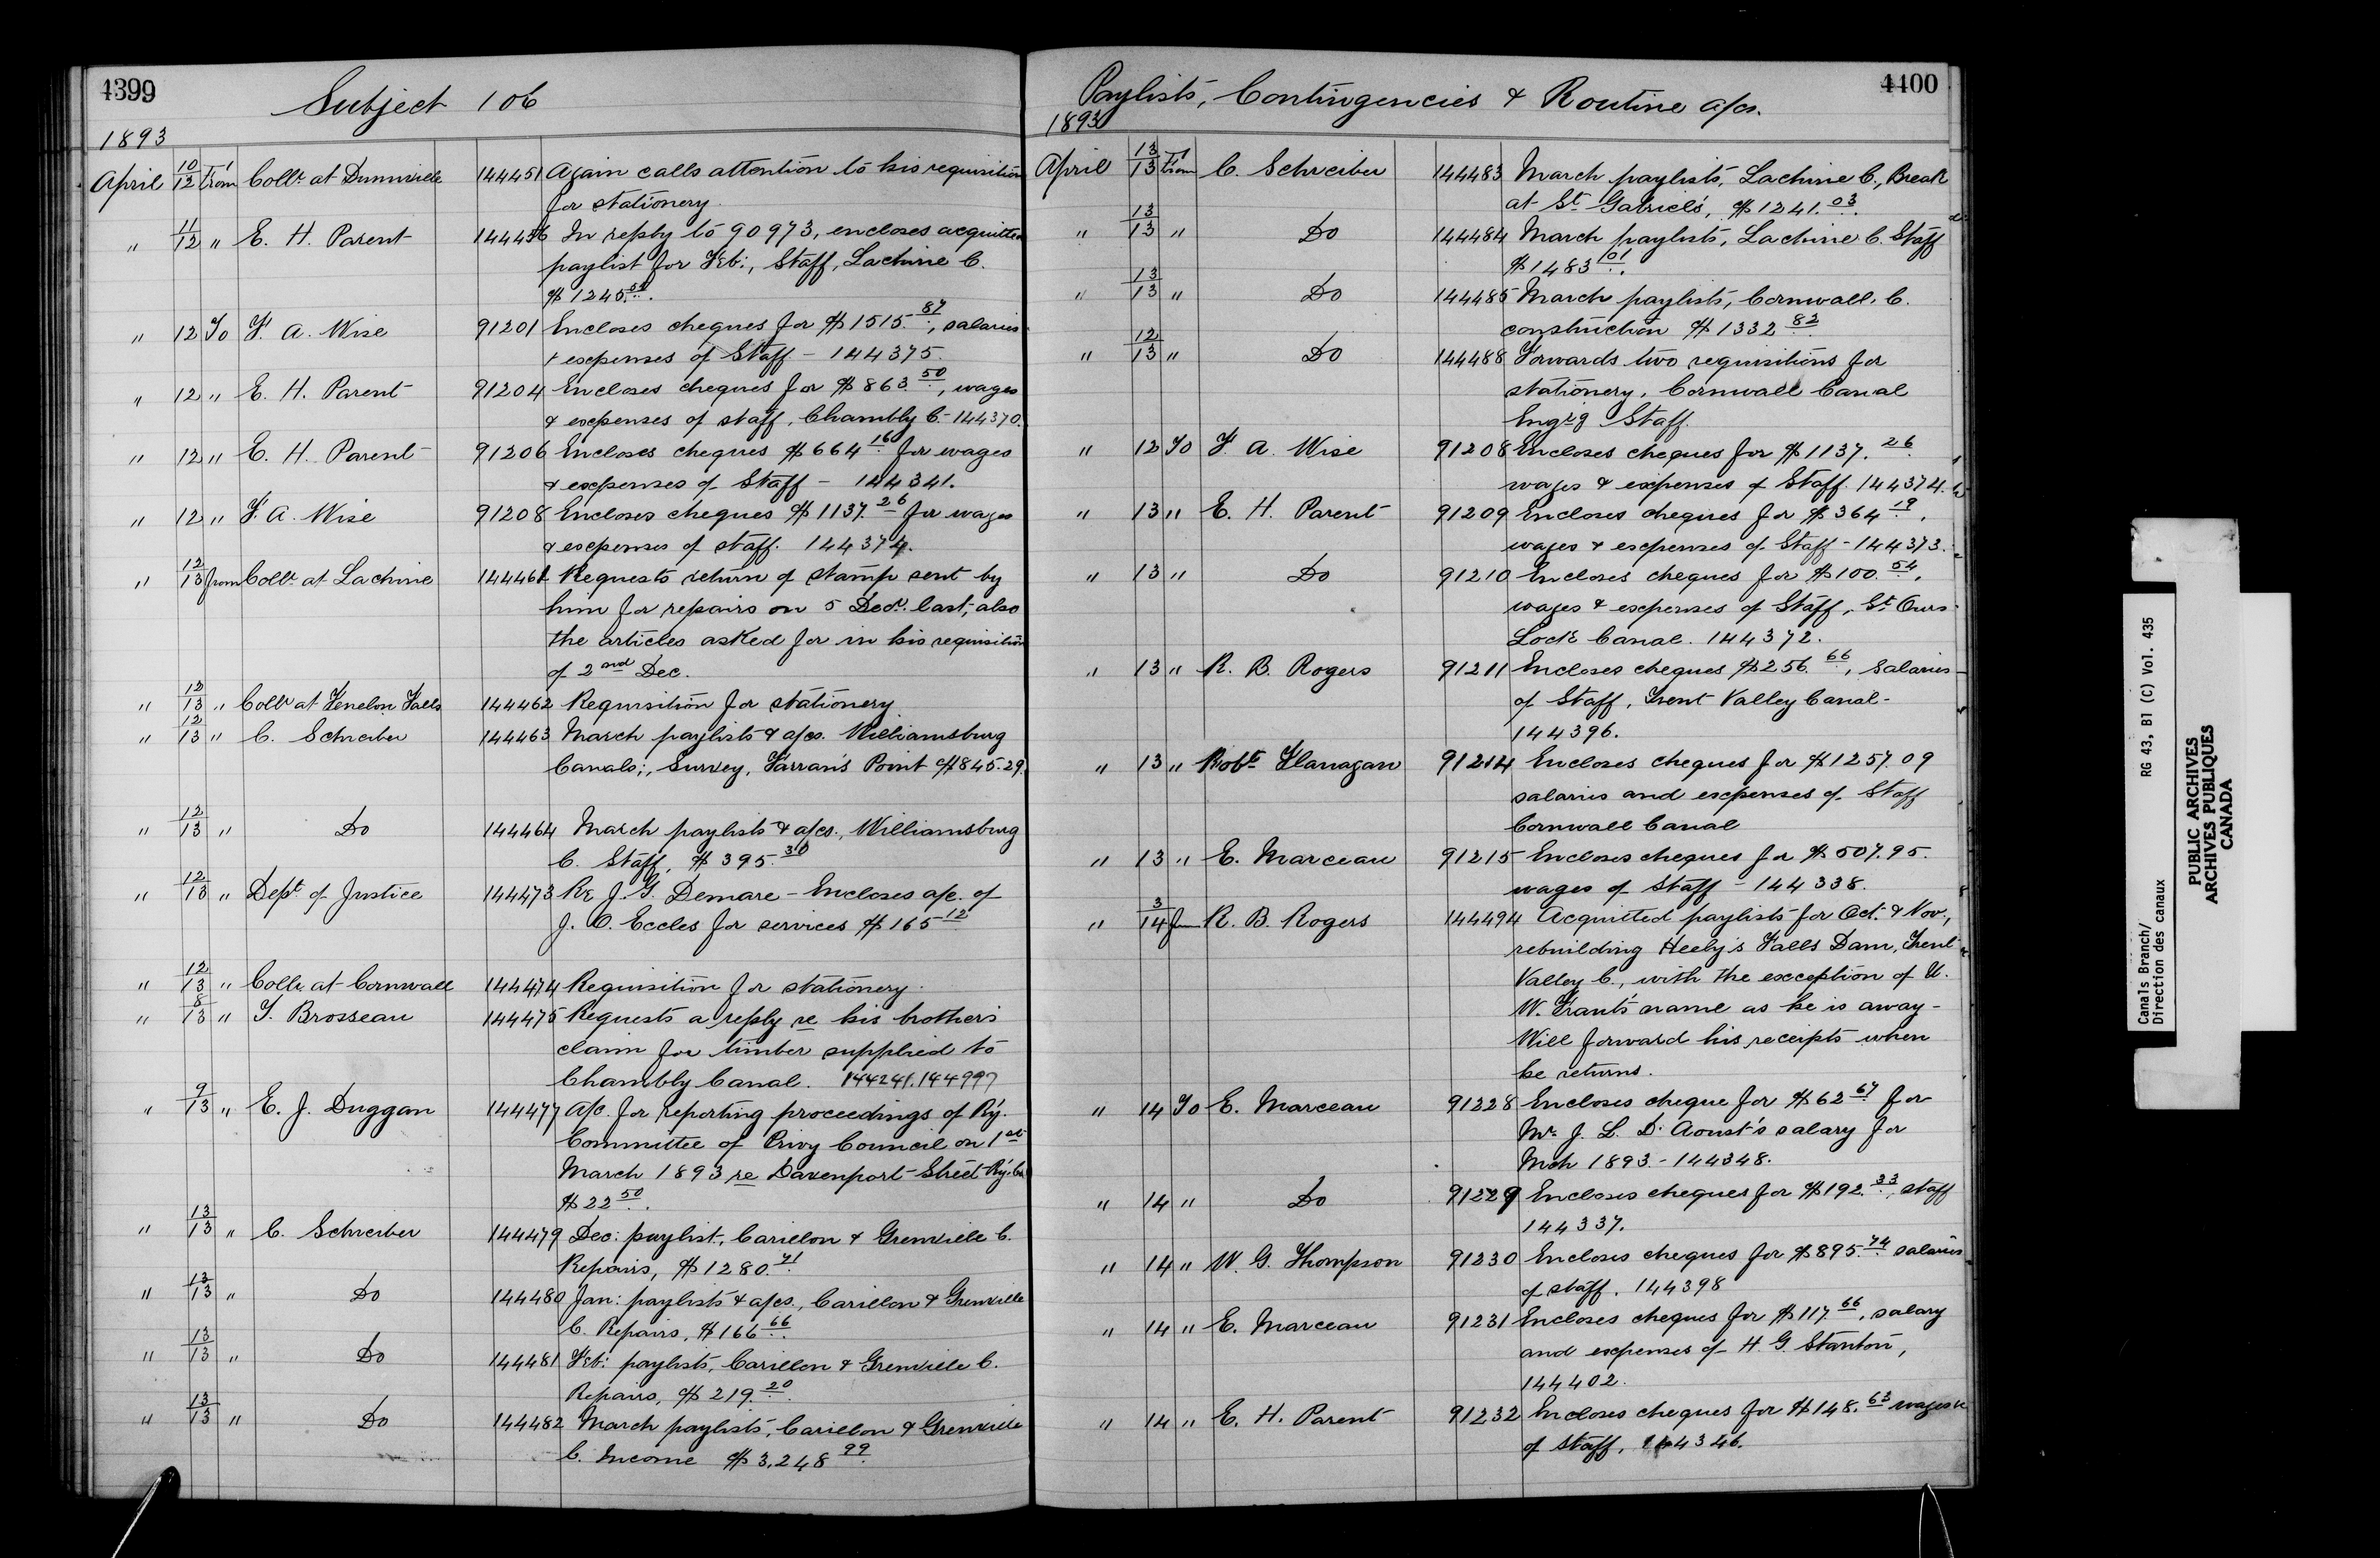 4399
Subject 106
1893
April 10/12 From Collr at Dunnville 144451 Again calls attention to his requisition
for stationery.
" 11/12 " E. H. Parent 144456 In reply to 90973, encloses acquitted
paylist for Feb:, Staff, Lachine C.
" 12 To F. A. Wise 91201 Encloses cheques for $1515.87, salaries
& expenses of Staff - 144375.
" 12 " E. H. Parent 91204 Encloses cheques for $863.50, wages
& expenses of staff, Chambly C. - 144370.
" 12 " E. H. Parent 91206 Encloses cheques $664.16 for wages
& expenses of Staff - 144341.
" 12 " F. A. Wise 91208 Encloses cheques $1137.26 for wages
& expenses of staff. 144374.
" 12/13 from Collr at Lachine 144461 Requests return of stamp sent by
him for repairs on 5 Decr. last, also
the articles asked for in his requisition
of 2nd Dec.
" 12/13 " Collr at Fenelon Falls 144462 Requisition for stationery
" 12/13 " C. Schreiber 144463 March paylists & a/cs. Williamsburg
Canals;, Survey, Farran's Point $845.29.
" 12/13 " Do 144464 March paylists & a/cs., Williamsburg
C. Staff, $395.30
" 12/13 " Dept of Justice 144473 Re J. G. Demare - Encloses a/c. of
J. O. Eccles for services $165.12
" 12/13 " Collr at Cornwall 144474 Requisition for stationery.
" 8/13 " T. Brosseau 144475 Requests a reply re his brother's
claim for timber supplied to
Chambly Canal. 144241. 144997
" 9/13 " E. J. Duggan 144477 A/c. for reporting proceedings of Ry.
Committee of Privy Council on 1st
March 1893 re Davenport Street Ry. Co.
$22.50.
" 13/13 " C. Schreiber 144479 Dec: paylist, Carillon & Grenville C.
Repairs, $1280.71.
" 13/13 " Do 144480 Jan: paylists & a/cs., Carillon & Grenville
C. Repairs, $166.66.
" 13/13 " Do 144481 Feb: paylists, Carillon & Grenville C.
Repairs, $219.20.
" 13/13 " Do 144482 March paylists, Carillon & Grenville
C. Income $3,248.99.
4400
Paylists, Contingencies & Routine a/cs.
1893
April 13/13 From C. Schreiber 144483 March paylists, Lachine C., Break
at St. Gabriel's, $1241.03.
" 13/13 " Do 144484 March paylists, Lachine C. Staff
$1483.01.
" 13/13 " Do 144485 March paylists, Cornwall C.
construction $1332.82
" 12/13 " Do 144488 Forwards two requisitions for
stationery, Cornwall Canal
Engr'g Staff.
" 12 To F. A. Wise 91208 Encloses cheques for $1137.26.
wages & expenses of Staff. 144374.
" 13 " E. H. Parent 91209 Encloses cheques for $364.19,
wages & expenses of Staff - 144373.
" 13 " Do 91210 Encloses cheques for $100.54,
wages & expenses of Staff, St. Ours
Lock Canal. 144372.
" 13 " R. B. Rogers 91211 Encloses cheques $256.66, Salaries
of Staff, Trent Valley Canal -
144396.
" 13 " Robt Flanagan 91214 Encloses cheques for $1257.09
salaries and expenses of Staff
Cornwall Canal
" 13 " E. Marceau 91215 Encloses cheques for $507.95.
wages of Staff - 144338.
" 3/14 from R. B. Rogers 144494 Acquitted paylists for Oct. & Nov.,
rebuilding Heely's Falls Dam, Trent
Valley C., with the exception of U.
W. Grant's name as he is away -
Will forward his receipts when
he returns.
" 14 To E. Marceau 91228 Encloses cheque for $62.67 for
Mr. J. L. D'Aoust's salary for
Mch 1893. - 144348.
" 14 " Do 91229 Encloses cheques for $192.33, staff
144337.
" 14 " W. G. Thompson 91230 Encloses cheques for $895.74 salaries
of staff. 144398
" 14 " E. Marceau 91231 Encloses cheques for $117.66, salary
and expenses of H. G. Stanton,
144402.
" 14 " E. H. Parent 91232 Encloses cheques for $148.63 wages
of staff, 144346.
Canals Branch/ RG 43, B1 (C) Vol. 435
Direction des canaux
PUBLIC ARCHIVES
ARCHIVES PUBLIQUES
CANADA